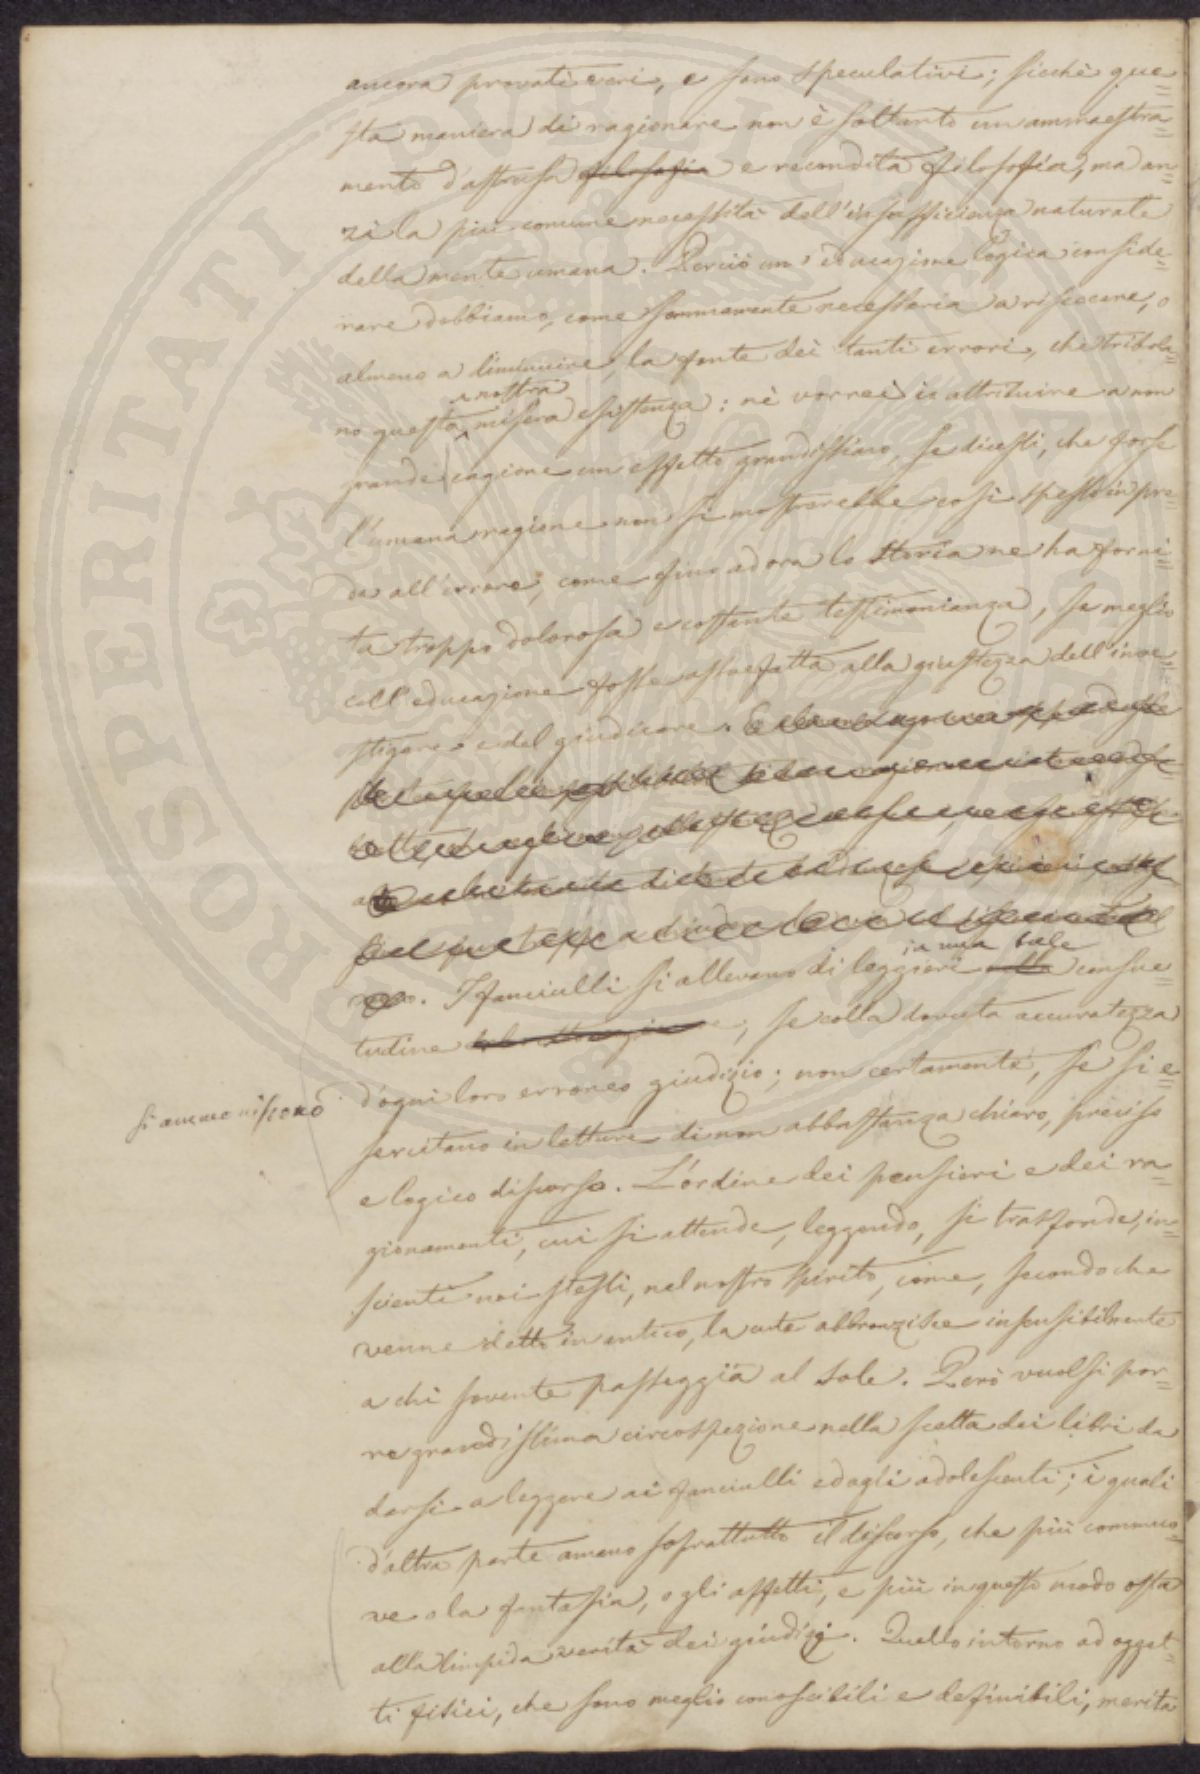 ancora provati veri, e sono speculativi; sicchè que=
sta maniera di ragionare non è soltanto un ammaestra=
mento d'astrusa filosofia e recondita filosofia, ma an=
zi la più comune necessità dell'insufficienza naturale
della mente umana. Perciò un' educazione logica conside=
rare dobbiamo, come sommamente necessaria a riseccare, o
almeno a diminuire la fonte dei tanti errori, che tribola=
a nostra
no questa misera esistenza: nè vorrei io attribuire a non
grande cagione un effetto grandissimo, se dicessi, che forse
l'umana ragione non si mostrerebbe così spesso in pre=
da all'errore, come fino ad ora la storia ne ha forni=
ta troppo dolorosa e costante testimonianza, se meglio
coll'educazione fosse assuefatta alla giustezza dell'inve=
stigare e del giudicare.
I fanciulli si allevano di leggieri
in una tale
consue
tudine, se colla dovuta accuratezza
si ammoniscono
d'ogni loro erroneo giudizio; non certamente, se si e=
sercitano in letture di non abbastanza chiaro, preciso
e logico discorso. L'ordine dei pensieri e dei ra=
gionamenti, cui si attende, leggendo, si trasfonde, in=
scienti noi stessi, nel nostro spirito, come, secondo che
venne detto in antico, la cute abbronzisce insensibilmente
a chi sovente passeggia al sole. Però vuolsi por=
re grandissima circospezione nella scelta dei libri da
darsi a leggere ai fanciulli ed agli adolescenti; i quali
d'altra parte amano soprattutto il discorso, che più commuo=
ve o la fantasia, o gli affetti, e più in questo modo osta
alla limpida verità dei giudizj. Quello intorno ad ogget=
ti fisici, che sono meglio conoscibili e definibili, merita
PUBLICAE VERITATI PROSPERITATI